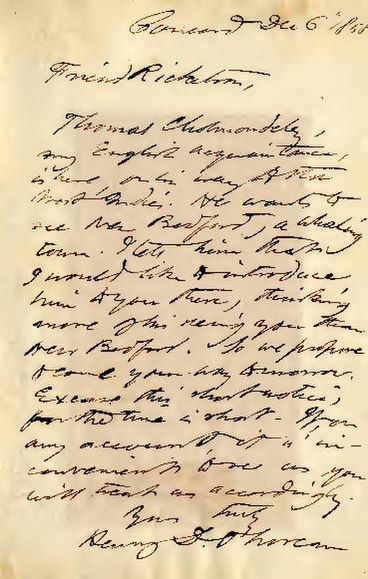 Concord Dec 6th 1858
Friend Ricketson,
Thomas Cholmondeley,
my English acquaintance,
is here on his way to the
West Indies. He wants to
see New Bedford, a whaling
town. I tell him that
I would like to introduce
him to you there, thinking
more of his seeing you than
New Bedford. So we propose
to come your way tomorrow.
Excuse this short notice,
for the time is short. If on
any account it is in-
convenient to see us, you
will treat us accordingly.
Yours truly
Henry D. Thoreau